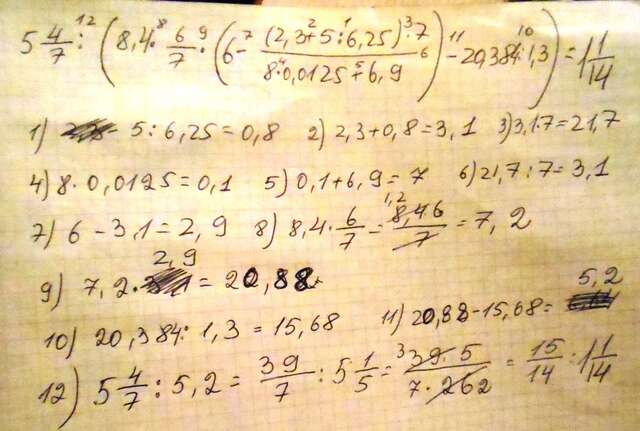 5 4/7 :¹² (8,4 ·⁸ 6/7 ·⁹ (6 -⁷ (2,3 +² 5 :¹ 6,25) ·³ 7 / 8 ·⁴ 0,0125 +⁵ 6,9 ⁶) -¹¹ 20,384 :¹⁰ 1,3) = 1 1/14
1) 5 : 6,25 = 0,8 2) 2,3 + 0,8 = 3,1 3) 3,1·7 = 21,7
4) 8 · 0,0125 = 0,1 5) 0,1 + 6,9 = 7 6) 21,7 : 7 = 3,1
7) 6 - 3,1 = 2,9 8) 8,4 · 6/7 = 1,2 8,4·6/7 = 7,2
9) 7,2 · 2,9 = 20,88
10) 20,384 : 1,3 = 15,68 11) 20,88 - 15,68 = 5,2
12) 5 4/7 : 5,2 = 39/7 : 5 1/5 = ³39·5/7·26 2 = 15/14 : 1 1/14